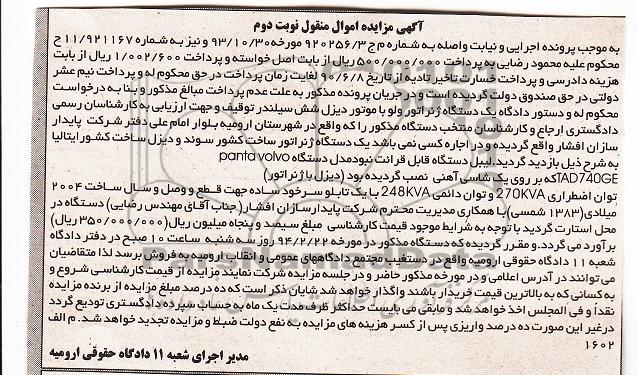 آگهی مزایده اموال منقول نوبت دوم
به موجب پرونده اجرایی و نیابت واصله به شماره م ج ۹۲۰۲۵۶/۳ مورخه ۹۳/۱۰/۳۰ و نیز به شماره ۱۱/۹۲۱۱۶۷ ح
محکوم علیه محمود رضایی به پرداخت ۵۰۰/۰۰۰/۰۰۰ ریال از بابت اصل خواسته و پرداخت ۱/۰۰۲/۶۰۰ ریال از بابت
هزینه دادرسی و پرداخت خسارت تاخیر تادیه از تاریخ ۹۱/۶/۸ لغایت زمان پرداخت در حق محکوم له و پرداخت نیم عشر
دولتی در حق صندوق دولت گردیده است و در جریان پرونده مذکور به علت عدم پرداخت مبالغ مذکور و بنا به درخواست
محکوم له و دستور دادگاه یک دستگاه ژنراتور ولو با موتور دیزل شش سیلندر توقیف و جهت ارزیابی به کارشناسان رسمی
دادگستری ارجاع و کارشناسان منتخب دستگاه مذکور را که واقع در شهرستان ارومیه بلوار امام علی دفتر شرکت پایدار
سازان افشار واقع گردیده و در اجاره کسی نمی باشد یک دستگاه ژنراتور ساخت کشور سوئد و دیزل ساخت کشور ایتالیا
به شرح ذیل بازدید گردید. لیبل دستگاه قابل قرائت نبود مدل دستگاه panta volvo
TAD740GE که بر روی یک شاسی آهنی نصب گردیده بود (دیزل با ژنراتور)
توان اضطراری 270KVA و توان دائمی 248KVA با یک تابلو سرخود ساده جهت قطع و وصل و سال ساخت ۲۰۰۴
میلادی (۱۳۸۳ شمسی) با همکاری مدیریت محترم شرکت پایدار سازان افشار (جناب آقای مهندس رضایی) دستگاه در
محل استارت گردید با توجه به شرایط موجود قیمت کارشناسی مبلغ سیصد و پنجاه میلیون ریال (۳۵۰/۰۰۰/۰۰۰ ریال)
برآورد می گردد. و مقرر گردید که دستگاه مذکور در مورخه ۹۴/۲/۲۲ روز سه شنبه ساعت ۱۰ صبح در دفتر دادگاه
شعبه ۱۱ دادگاه حقوقی ارومیه واقع در دستغیب مجتمع دادگاههای عمومی و انقلاب ارومیه به فروش برسد لذا متقاضیان
می توانند در آدرس اعلامی و در مورخه مذکور حاضر و در جلسه مزایده شرکت نمایند مزایده از قیمت کارشناسی شروع و
به کسانی که به بالاترین قیمت خریدار باشند واگذار خواهد شد شایان ذکر است که ده درصد مبلغ مزایده از برنده مزایده
نقداً و فی المجلس اخذ خواهد شد و مابقی می بایست حداکثر ظرف مدت یک ماه به حساب سپرده دادگستری تودیع گردد
در غیر این صورت ده درصد واریزی پس از کسر هزینه های مزایده به نفع دولت ضبط و مزایده تجدید خواهد شد. م الف
۱۶۰۲
مدیر اجرای شعبه ۱۱ دادگاه حقوقی ارومیه